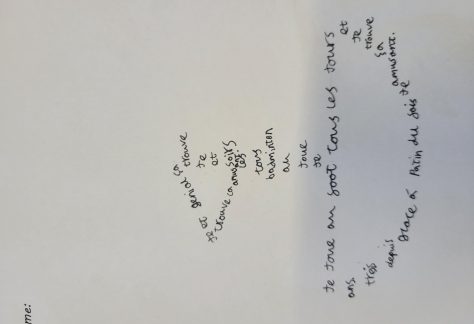 me:
Je Joue au badminton tous les soirs et Je trouve ça genial et Je
trouve ca amusant.
Je Joue au foot tous les Jours et Je trouve ça amusant.
Je fais du Patin à glace depuis trois ans.